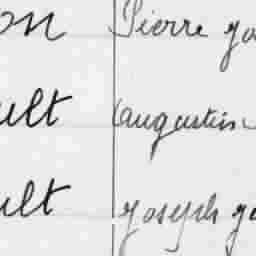 on Pierre
ult augustin
ult joseph